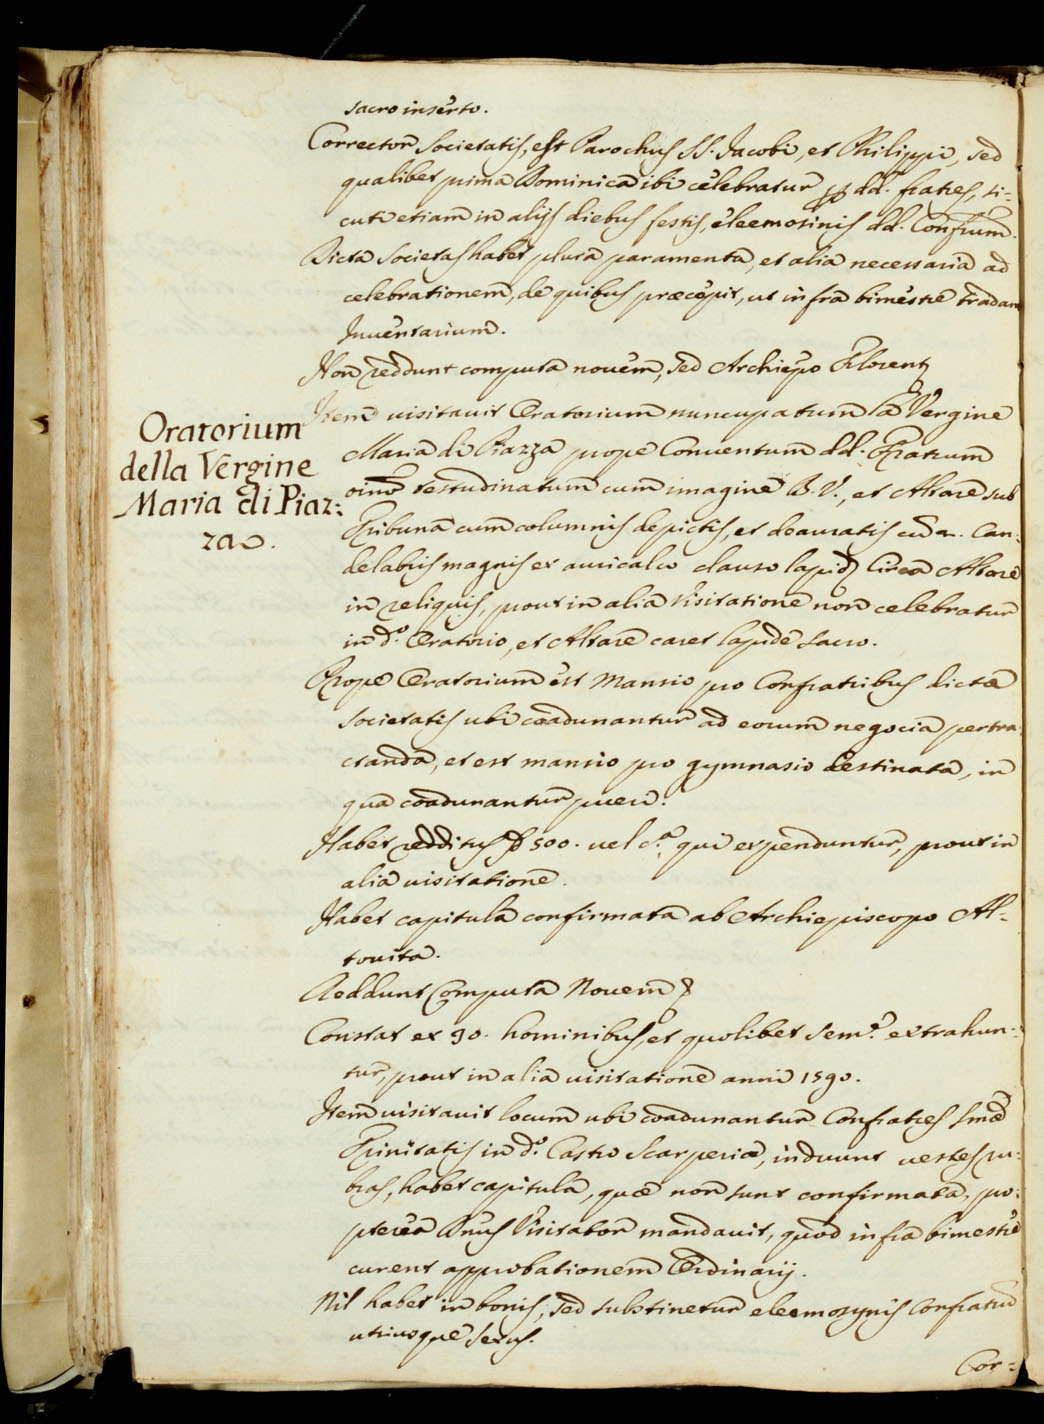 sacro inserto.
Corrector Societatis, est Parochus SS. Jacobi, et Philippi, sed
qualibet prima Dominica ibi celebratur p dd. fratres, si-
cuti etiam in alijs diebus festis, eleemosinis dd. Confrum.
Dicta Societas habet plura paramenta, et alia necessaria ad
celebrationem, de quibus præcepit, ut infra bimestre tradant
Inventarium.
Non reddunt computa novem, sed Archiepo Florent
Oratorium
della Vergine
Maria di Piaz:
za.
Item visitavit Oratorium nuncupatum la Vergine
Maria di Piazza prope Conventum dd. Fratrum
oino testudinatum cum imagine B. V., et Altare sub
Tribuna cum columnis depictis, et deauratis cum. Can:
delabris magnis ex auricalco clauso lapid Circa Altare
in reliquis, prout in alia Visitatione non celebratur
in d.o Oratorio, et Altare caret lapide sacro.
Prope Oratorium est Mansio pro Confratribus dictæ
Societatis ubi coadunantur ad eorum negocia pertra
ctanda, et est mansio pro gymnasio destinata, in
qua coadunantur pueri.
Habet redditus 500. vel c.a qui expenduntur, prout in
alia visitatione.
Habet capitula confirmata ab Archiepiscopo Al-
tovita.
Reddunt Computa Novem
Constat ex 90. hominibus, et quolibet Sem.e extrahun-
tur, prout in alia visitatione anni 1590.
Item visitavit locum ubi coadunantur Confratres Smæ
Trinitatis in d.o Castro Scarperiæ, induunt vestes ru:
bras, habet capitula, quæ non sunt confirmata, pro:
pterea Dnus Visitator mandavit, quod infra bimestre
curent approbationem Ordinarij.
Nil habet in bonis, sed substinetur eleemosynis Confratrum
utriusque sexus.
Cor=